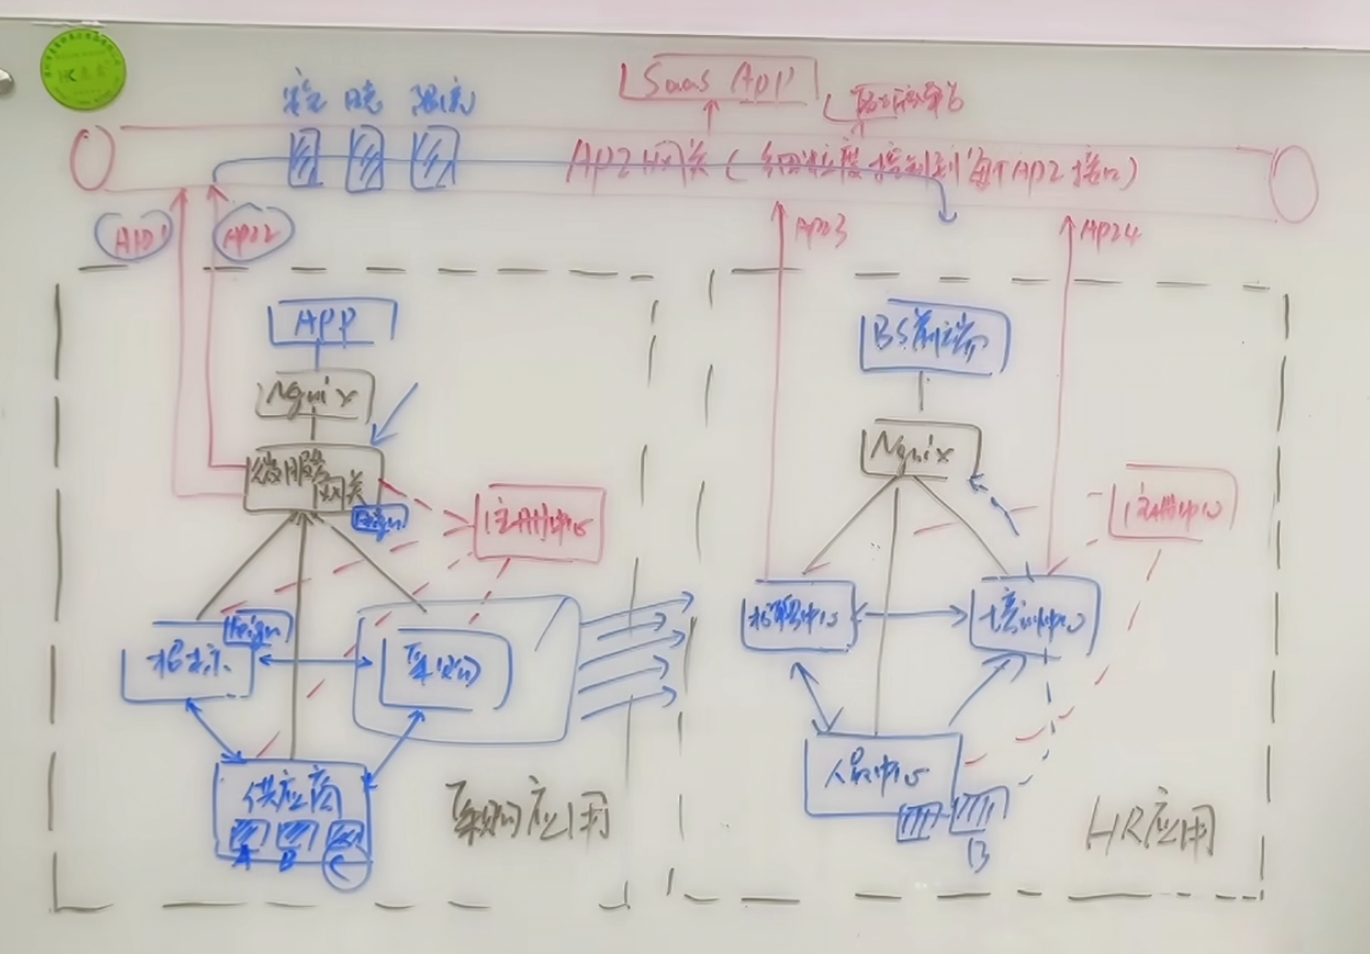 安全 日志 限流
SaaS App
API网关 ( 细粒度控制到每个API接口 )
API1
API2
API3
API4
APP
Ngnix
微服务
网关
Feign
注册中心
招投标
Feign
采购
供应商
A B C
采购应用
BS前端
Ngnix
注册中心
招聘中心
培训中心
人员中心
B
HR应用